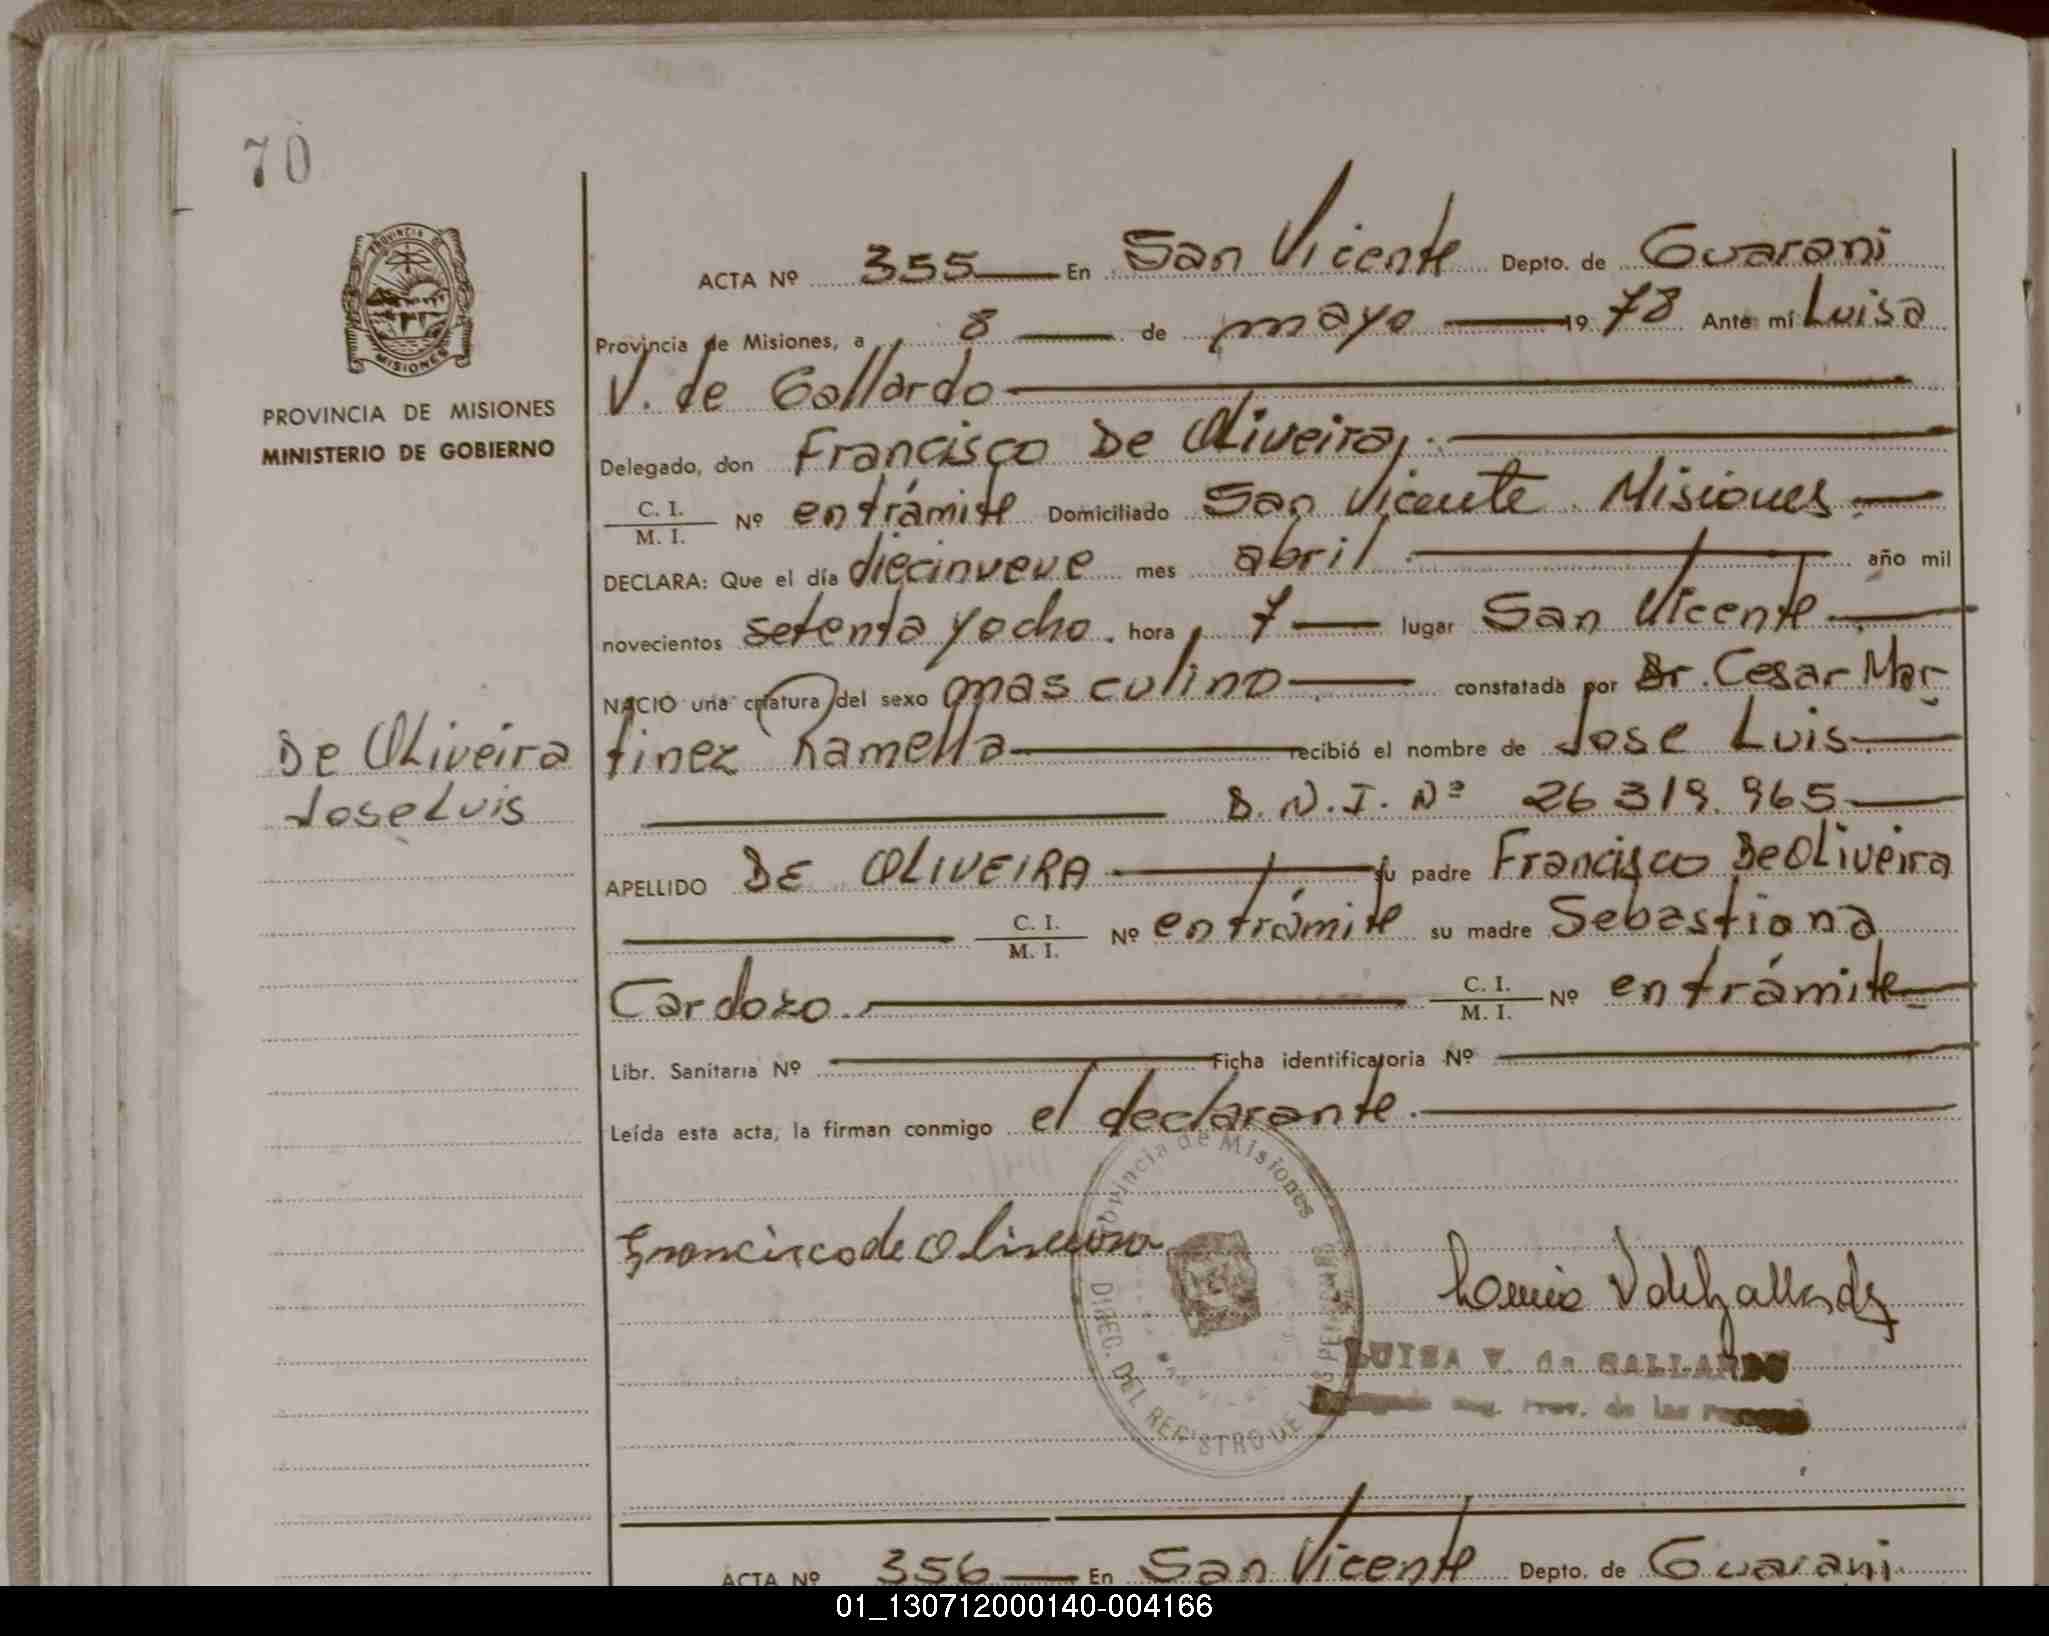 70
PROVINCIA DE MISIONES
PROVINCIA DE MISIONES
MINISTERIO DE GOBIERNO
De Oliveira
Jose Luis
ACTA Nº 355 En San Vicente Depto. de Guarani
Provincia de Misiones, a 8 de mayo 1978 Ante mí Luisa
V. de Gallardo
Delegado, don Francisco De Oliveira,
C. I.
M. I. Nº en trámite Domiciliado San Vicente Misiones
DECLARA: Que el día diecinueve mes abril año mil
novecientos setenta y ocho. hora 7 lugar San Vicente
NACIO una criatura del sexo masculino constatada por Dr. Cesar Mar
tinez Ramella recibió el nombre de Jose Luis
D. N. I. Nº 26 319. 965
APELLIDO DE OLIVEIRA su padre Francisco De Oliveira
C. I.
M. I. Nº en trámite su madre Sebastiana
Cardozo. C. I.
M. I. Nº en trámite
Libr. Sanitaria Nº Ficha identificatoria Nº
Leída esta acta, la firman conmigo el declarante.
Provincia de Misiones
DIREC. DEL REGISTRO DE LAS PERSONAS
Francisco de Oliveira
Luisa V de Gallardo
LUISA V. de GALLARDO
Reg. Prov. de las
ACTA Nº 356 En San Vicente Depto. de Guarani
01_130712000140-004166